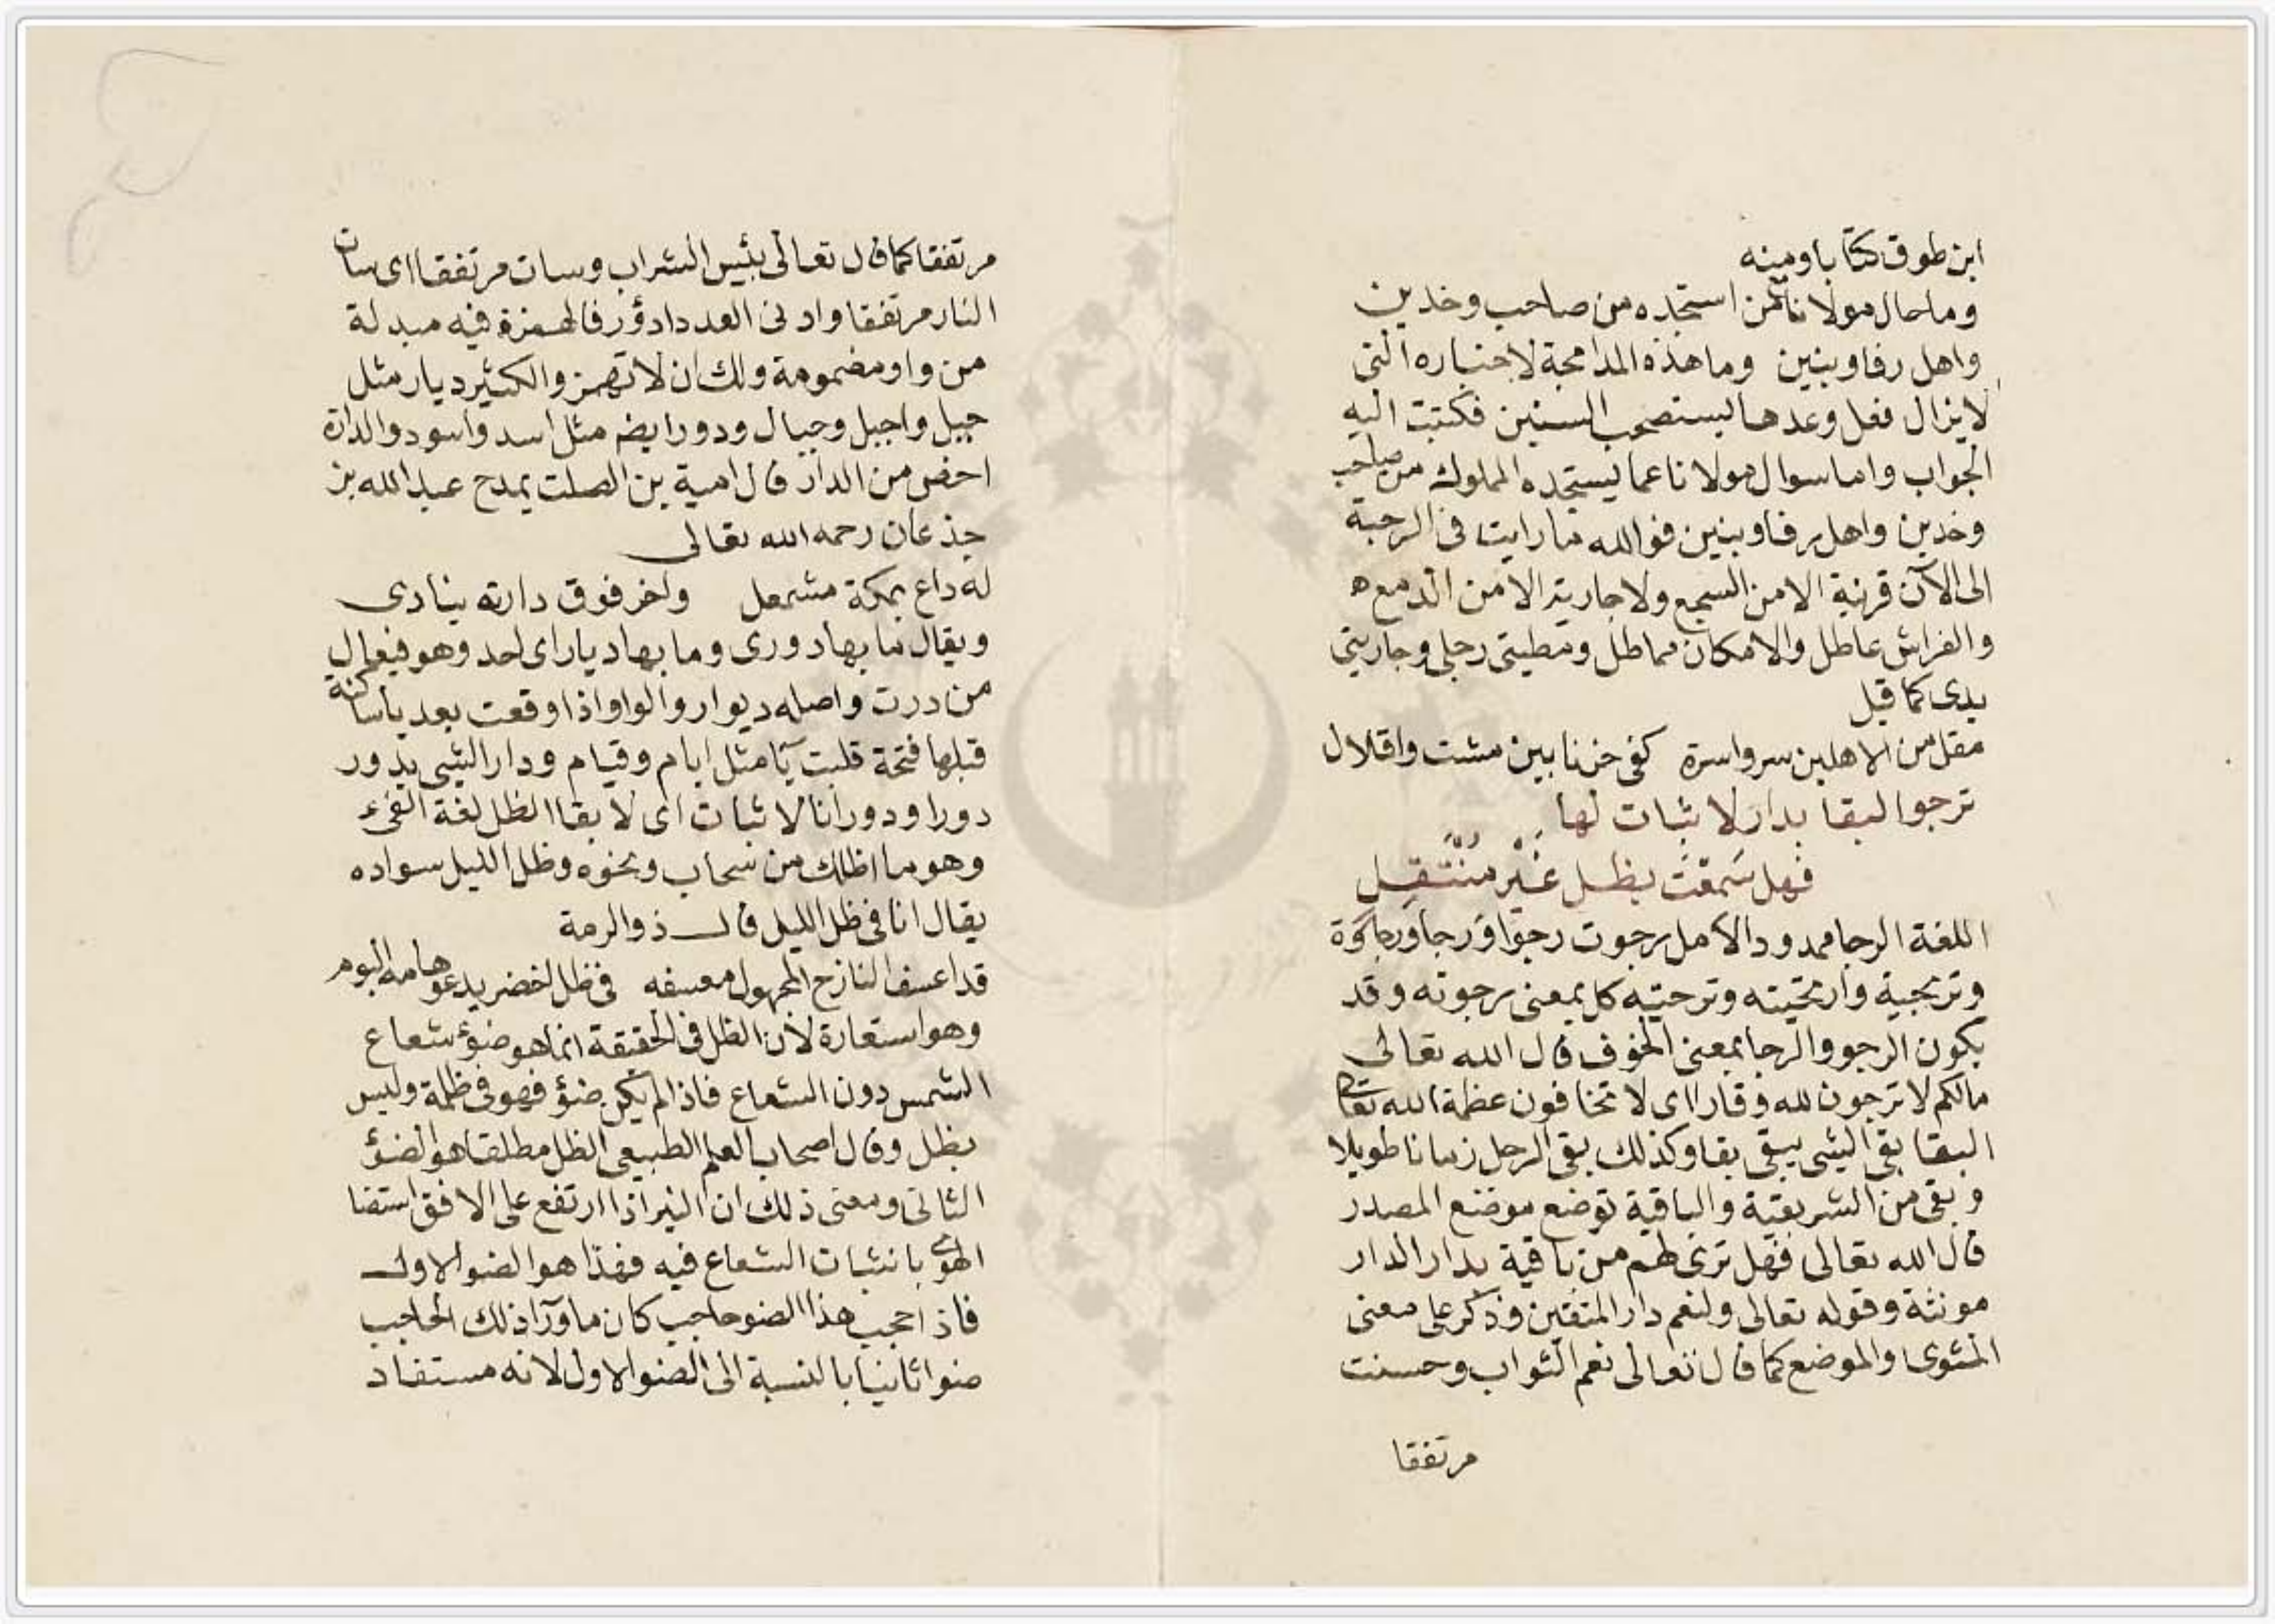 ابن طوق كتابا ومنه
وما حال مولانا فمن استجده من صاحب وخدين
واهل رفا وبنين وما هذه المدامجة لاخباره التي
لا يزال فعل وعدها يستصحب السنين فكتبت اليه
الجواب واما سوال مولانا عما يستجده المملوك من صاحب
وخدين واهل برفا وبنين فوالله ما رايت في الرحبة
الى الآن قرينة الا من السجع ولا جارية الا من الدمع ه
والفراش عاطل والامكان مماطل ومطيتي رجلي وجاريتي
يدي كما قيل
مقل من الاهلين سر واسرة كفى حزنا بين مشت واقلال
ترجوا البقا بدار لا ثبات لها
فهل سَمعْتَ بظل غَيْر مُنْتَقِل
اللغة الرجا ممدود الامل يرجوت رجوا ورجا ورجاوة
وترجية وارتجيته وترجيته كل بمعنى رجوته وقد
يكون الرجو والرجا بمعنى الخوف قال الله تعالى
مالكم لا ترجون لله وقارا اى لا تخافون عظمة الله تعالى
البقا بقى الشى يبقى بقا وكذلك بقى الرجل زمانا طويلا
وبقى من الشر بقية والباقية توضع موضع المصدر
قال الله تعالى فهل ترى لهم من باقية بدار الدار
مونثة وقوله تعالى ولنعم دار المتقين وذكر على معنى
المثوى والموضع كما قال تعالى نعم الثواب وحسنت
مرتفقا
مرتفقا كما قال تعالى بئس الشراب وسات مرتفقا اى سات
النار مرتفقا وادنى العدد ادؤر فالهمزة فيه مبدلة
من واو مضمومة ولك ان لا تهمز والكثير ديار مثل
جبل واجبل وجبال ودور ايضه مثل اسد واسود والدارة
اخص من الدار قال امية بن الصلت يمدح عبد الله بن
جذعان رحمه الله تعالى
له داع بمكة مشمعل واخر فوق دارته ينادى
ويقال ما بها دورى وما بها ديار اى احد وهو فيعال
من درت واصله ديوار والواو اذا وقعت بعد يا ساكنة
قبلها فتحة قلبت يآ مثل ايام وقيام ودار الشى يدور
دورا ودورانا لا ثبات اى لا بقا الظل لغة الفىء
وهو ما اظلك من سحاب ونحوه وظل الليل سواده
يقال انا فى ظل الليل قال ذوالرمة
قد اعسف النازح المجهول معسفه فى ظل اخضر يدعو هامه البوم
وهو استعارة لان الظل فى الحقيقة انما هو ضوؤ شعاع
الشمس دون الشعاع فاذا لم يكن ضؤ فهو فى ظلمة وليس
بظل وقال اصحاب العلم الطبيعى الظل مطلقا هو الضؤ
الثانى ومعنى ذلك ان النير اذا ارتفع على الافق استضا
الهوى بانبثات الشعاع فيه فهذا هو الضو الاول
فاذ احجب هذا الضو حاجب كان ما ورآ ذلك الحاجب
ضوا ثانيا بالنسبة الى الضو الاول لانه مستفاد